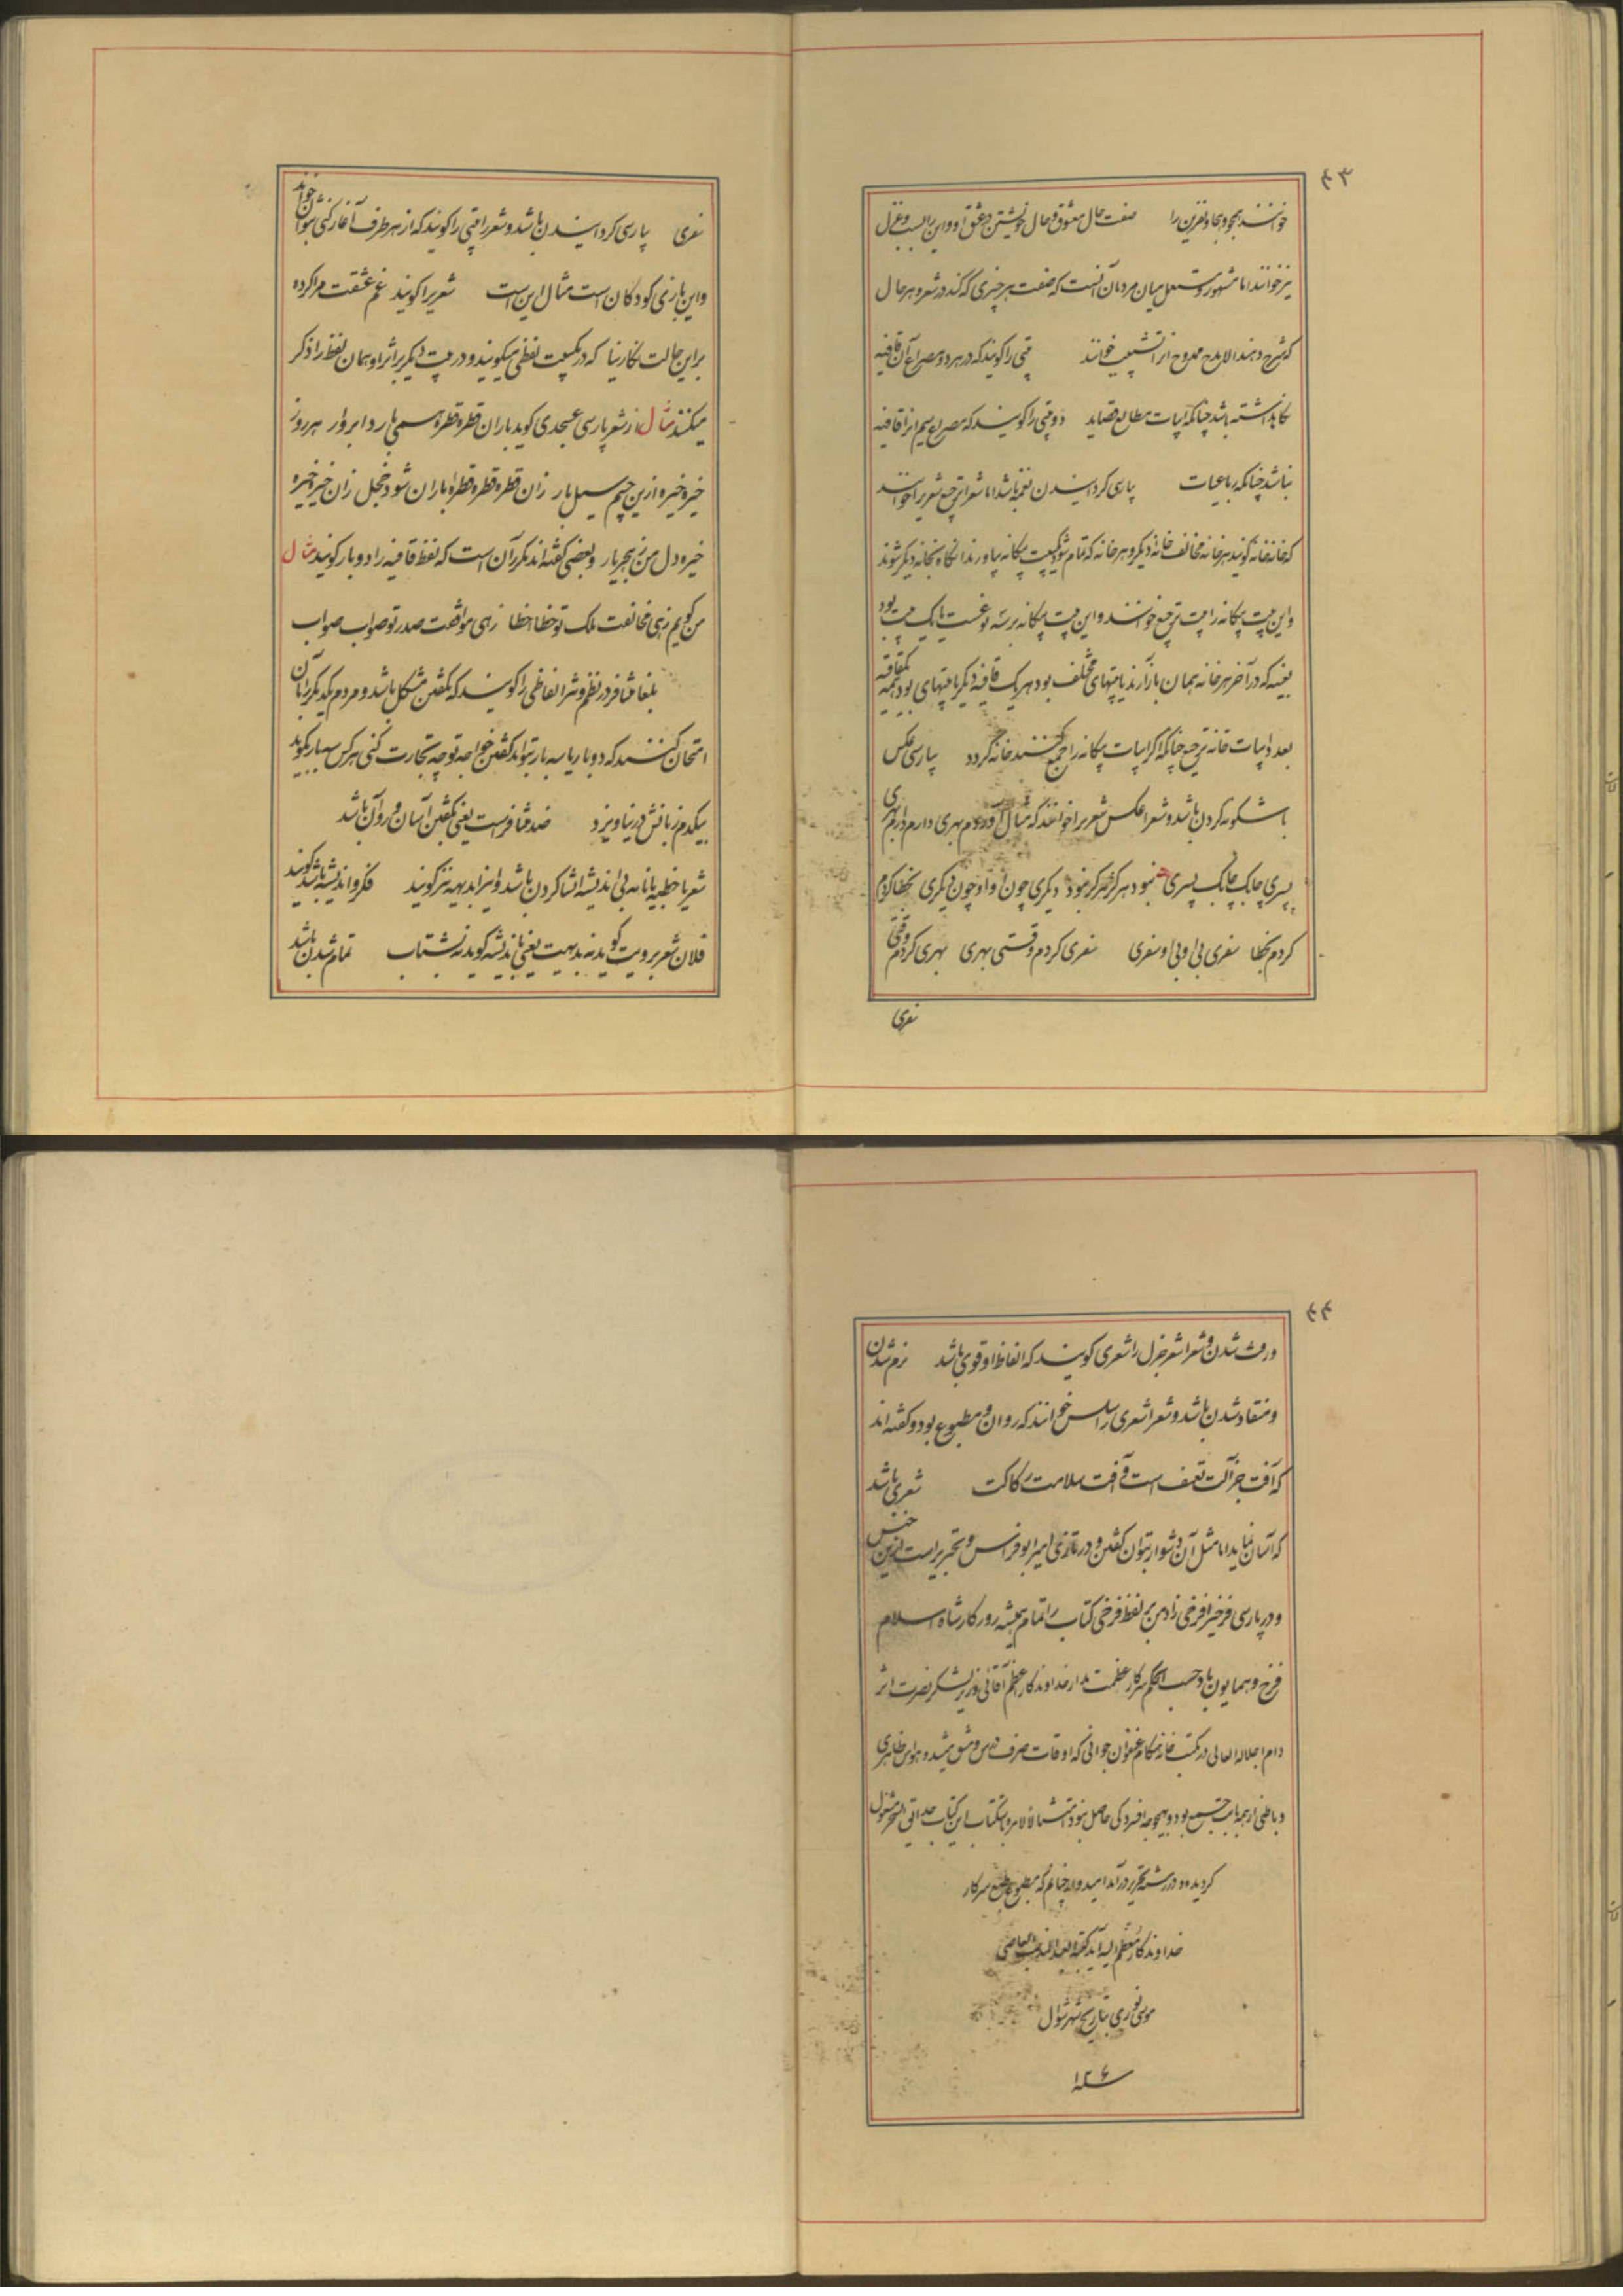 ۴۳
خوانند هجو و هجا و نفرین را صفت حال معشوق و حال خویشتن در عشق او و این را نسیب و غزل
نیز خوانند اما مشهور و مستعمل میان مردمان آنست که صفت هر چیزی که کنند در شعر و هر حال
که شرح دهند الا مدح ممدوح انرا تشبیب خوانند بیتی را گویند که در هر دو مصراع آن قافیه
نگاه داشته باشد چنانکه ابیات مطالع قصاید دو بیتی را گویند که مصراع سیم انرا قافیه
نباشد چنانکه رباعیات پارسی گردانیدن نغمه باشد اما شعرا ترجیع شعریرا خوانند
که خانه خانه گویند هر خانه مخالف خانه دیگر و هر خانه که تمام شود یکبیت بیگانه بیاورند انگاه بخانه دیگر شوند
و این بیت بیگانه را بیت ترجیع خوانند و این بیت بیگانه بر سه نوعست یا یک بیت بود
بعینه که در آخر هر خانه همان باز آرند یا بیتهای مختلف بود هر یک قافیه دیگر یا بیتهای بود همه یکقافیه
بعدد ابیات خانه ترجیع چنانکه اگر ابیات بیگانه را جمع کنند خانه گردد پارسی عکس
باشگونه کردن باشد و شعرا عکس شعریرا خوانند که مثال آورده‌ام بهری دارم دارم بهری
پسری چابک چابک پسری نبود هرگز هرگز نبود دیگری چون او چون او دیگری بخطا کردم
کردم بخطا سفری بی او بی او سفری سفری کردم وقتی بهری بهری کردم وقتی
سفری
سفری پارسی گردانیدن باشد و شعرا بیتی را گویند که از هر طرف آغاز کنی بتوان خواند
و این بازی کودکان است مثال این است شعریرا گویند غم عشقت مرا کرده
براین حالت نگارینا که در یکبیت لفظی میگویند و در بیت دیگر براثر او همان لفظ را ذکر
میکنند مثال از شعر پارسی عسجدی گوید باران قطره قطره همی بارد ابروار هر روز
خیره خیره ازین چشم سیل بار زان قطره قطره قطره باران شود خجل زان خیره خیره
خیره دل من ز هجر یار و بعضی گفته‌اند مکرر آن است که لفظ قافیه را دو بار گویند مثال
من گویم زهی مخالفت ملک تو خطا خطا زهی موافقت صدر تو صواب صواب
بلغا متنافر در نظم و نثر الفاظی را گویند که گفتن مشکل باشد و مردم یکدیگر را بآن
امتحان کنند که دو بار یا سه بار بتواند گفتن خواجه تو چه تجارت کنی هر کس سه بار بگوید
بیکدم زبانش در نیاویزد ضد متنافر است یعنی بگفتن آسان و روان باشد
شعر یا خطبه یا نامه بی اندیشه انشا کردن باشد و اینرا بدیهه نیز گویند فکر و اندیشه باشد گویند
فلان شعر برویت گوید نه بدیهت یعنی باندیشه گوید نه بشتاب تمام شدن باشد
۴۴
و رفت شدن و شعرا شعر جزل را شعری گویند که الفاظ او قوی باشد نرم شدن
و منقاد شدن باشد و شعرا شعری را سلس خوانند که روان و مطبوع بود و گفته‌اند
که آفت جزالت تعسف است و آفت سلاست رکاکت شعری باشد
که آسان نماید اما مثل آن دشوار بتوان گفتن و در تازی امیر ابوفراس و بحتری راست ازین جنس
و در پارسی فرخیرا فرخی زاد من بر لفظ فرخی کتاب را تمام همیشه روزگار شاه اسلام
فرخ و همایون باد حسب الحکم سرکار عظمت مدار خداوندگار اعظم آقائی وزیر لشکر نصرت اثر
دام اجلاله العالی در مکتب خانه هنگام عنفوان جوانی که اوقات صرف درس و مشق میشد و حواس ظاهری
و باطنی از همه بابت جمع بود و بهیچوجه افسردگی حاصل نبود امتثالا لامره باکتتاب این کتاب حدائق السحر مشغول
گردیده و در رشته تحریر درآمد امیدوار چنانم که مطبوع طبع سرکار
خداوندگار معظم الیه آید کتبه العبد المذنب العاصی
موسی نوری بتاریخ شهر شوال
سنه ۱۲۶